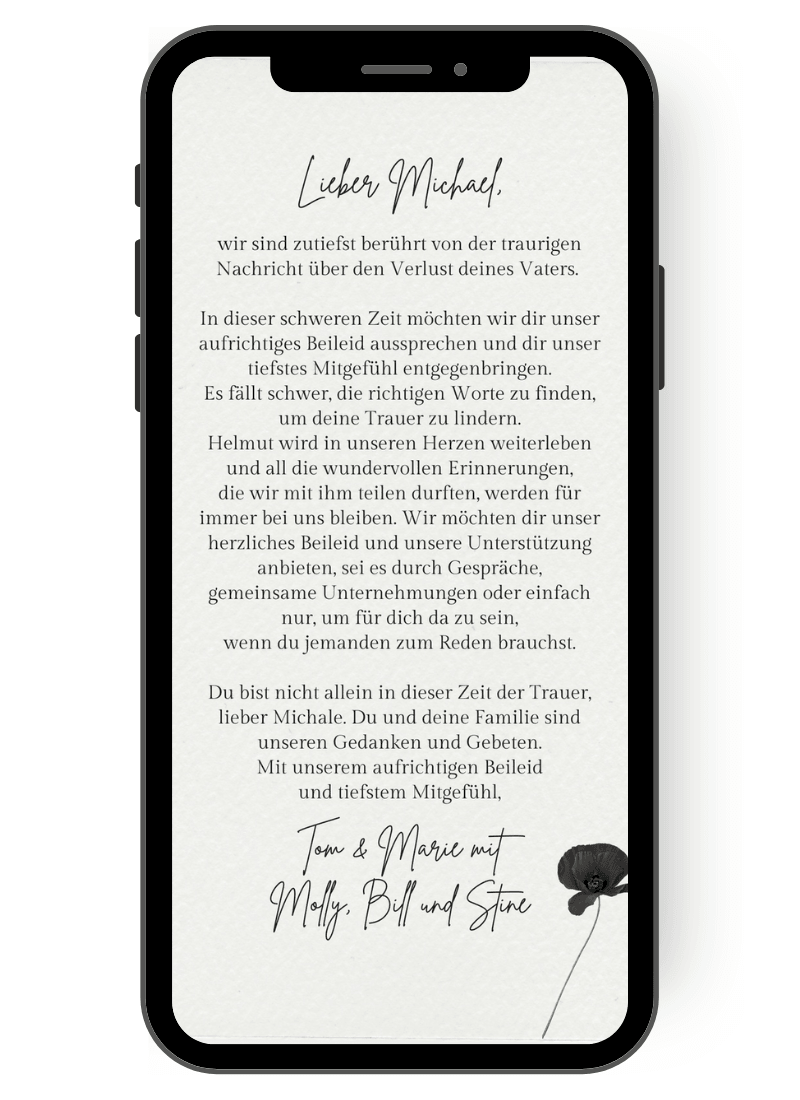 Lieber Michael,
wir sind zutiefst berührt von der traurigen
Nachricht über den Verlust deines Vaters.
In dieser schweren Zeit möchten wir dir unser
aufrichtiges Beileid aussprechen und dir unser
tiefstes Mitgefühl entgegenbringen.
Es fällt schwer, die richtigen Worte zu finden,
um deine Trauer zu lindern.
Helmut wird in unseren Herzen weiterleben
und all die wundervollen Erinnerungen,
die wir mit ihm teilen durften, werden für
immer bei uns bleiben. Wir möchten dir unser
herzliches Beileid und unsere Unterstützung
anbieten, sei es durch Gespräche,
gemeinsame Unternehmungen oder einfach
nur, um für dich da zu sein,
wenn du jemanden zum Reden brauchst.
Du bist nicht allein in dieser Zeit der Trauer,
lieber Michale. Du und deine Familie sind
unseren Gedanken und Gebeten.
Mit unserem aufrichtigen Beileid
und tiefstem Mitgefühl,
Tom & Marie mit
Molly, Bill und Stine